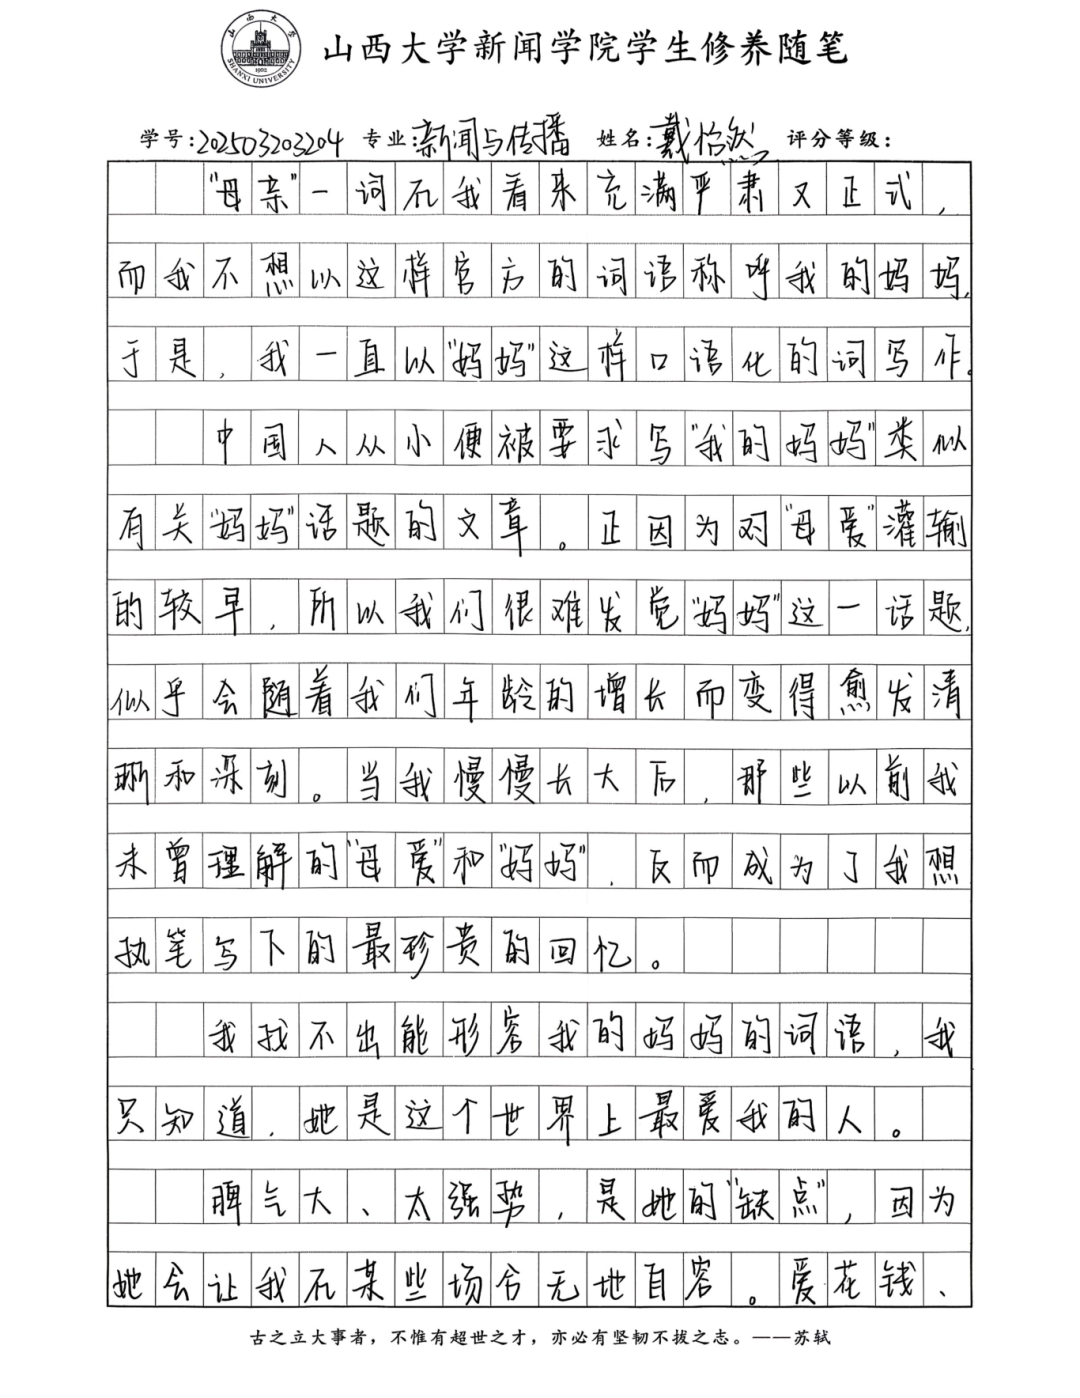 山西大学
SHANXI UNIVERSITY
1902
山西大学新闻学院学生修养随笔
学号:202503203204 专业:新闻与传播 姓名:戴怡然 评分等级:
“母亲”一词在我看来充满严肃又正式，
而我不想以这样官方的词语称呼我的妈妈，
于是，我一直以“妈妈”这样口语化的词写作。
中国人从小便被要求写“我的妈妈”类似
有关“妈妈”话题的文章。正因为对“母爱”灌输
的较早，所以我们很难发觉“妈妈”这一话题，
似乎会随着我们年龄的增长而变得愈发清
晰和深刻。当我慢慢长大后，那些以前我
未曾理解的“母爱”和“妈妈”，反而成为了我想
执笔写下的最珍贵的回忆。
我找不出能形容我的妈妈的词语，我
只知道，她是这个世界上最爱我的人。
脾气大、太强势，是她的“缺点”，因为
她会让我在某些场合无地自容。爱花钱、
古之立大事者，不惟有超世之才，亦必有坚韧不拔之志。——苏轼